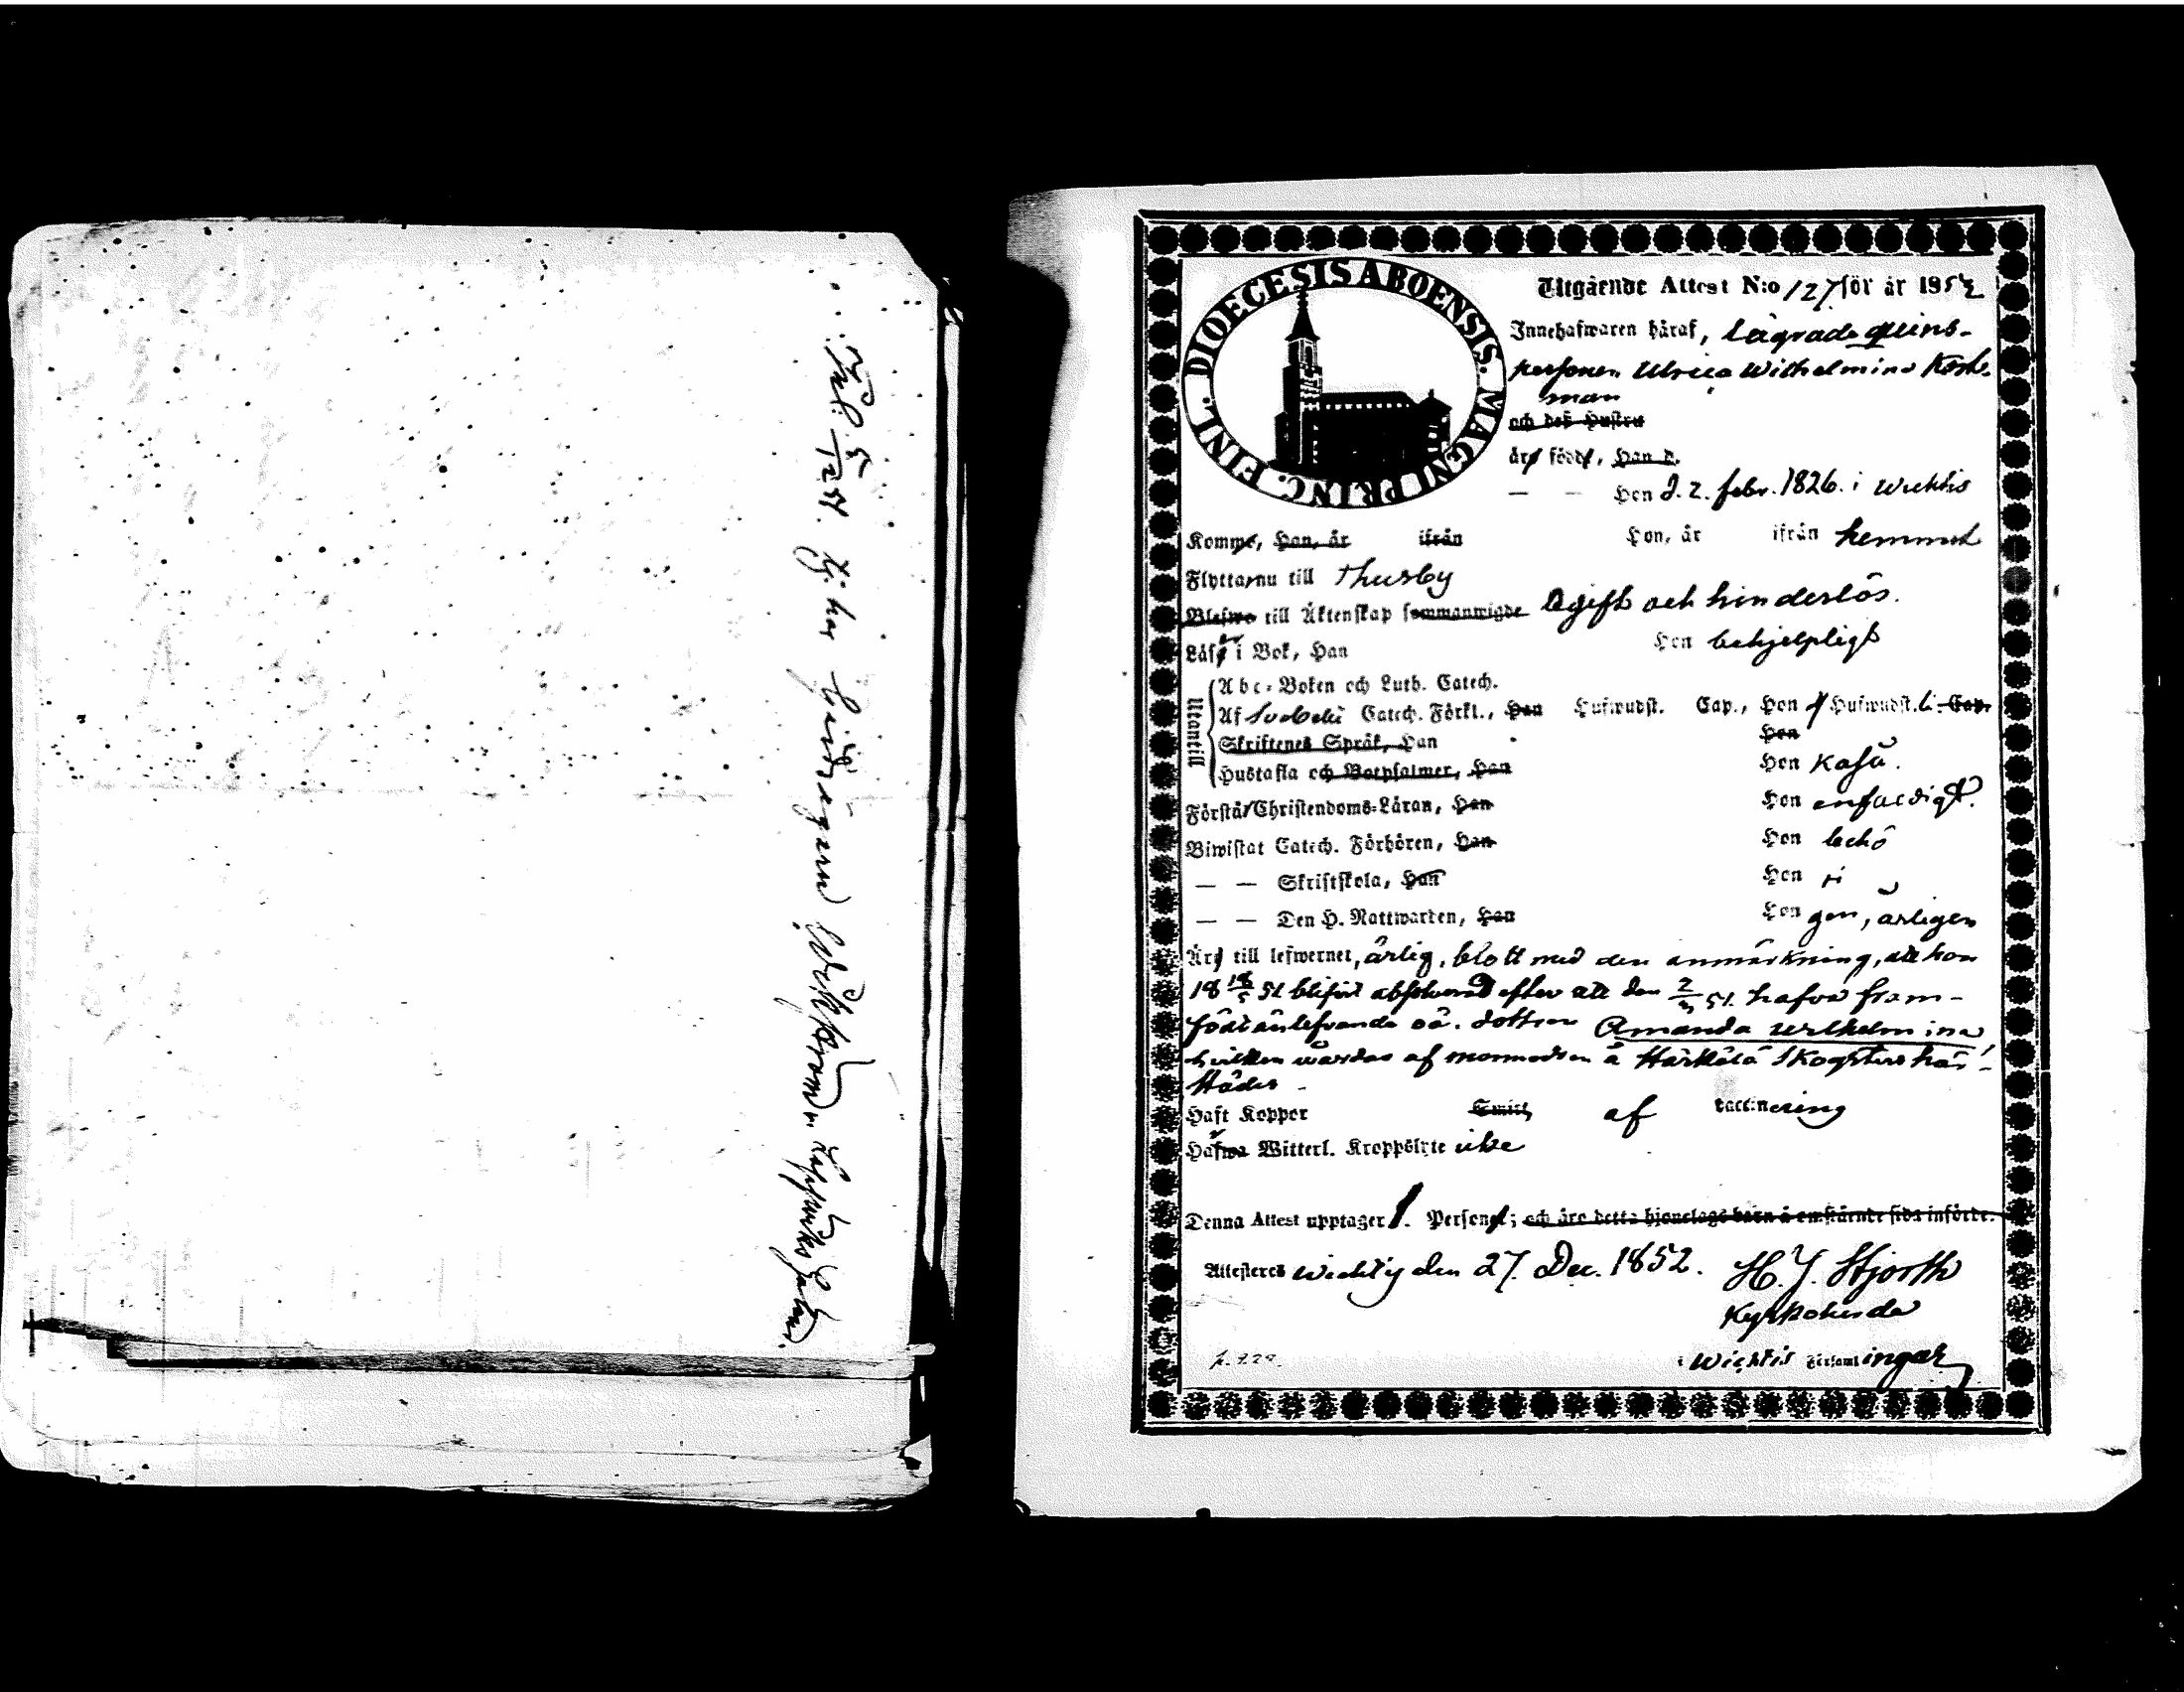 Inl. 5/12 54. tj. hos
DIOECESIS ABOENSIS. MAGNI PRINC. FINL.
Utgående Attest N:o 127 för år 1852
Innehafwaren häraf, lägrade qvins-
personen Ulrica Wilhelmina Kosk-
man
och deß Hustru
äre född, Han d.
— — Hon d. 2. febr. 1826. i Wichtis
Komme, Han, år ifrån Hon, år ifrån hemmet
Flyttar nu till Thusby
Blefwo till Äktenskap sammanwigde Ogift och hinderlös.
Läser i Bok, Han Hon behjelpligt
Utantill
Abc-Boken och Luth. Catech.
Af Svebelii Catech. Förkl., Han Hufwudst. Cap., Hon Hufwudst. Cap.
Skriftenes Språk, Han Hon
Hustafla och Botpsalmer, Han Hon
Förstå Christendoms-Läran, Han Hon enfaldigt.
Biwistat Catech. Förhören, Han Hon
— — Skriftskola, Han Hon
— — Den H. Nattwarden, Han Hon årligen
Äre till lefwernet, ärlig, blott med den anmärkning, att hon
18 18/5 51 blifvit absolverad efter att den 2/3 51. hafva fram-
födt oä. dottren Amanda Wilhelmina
hvilken vårdas af mormodren å Härkälä Skogstorp här-
städes
Haft Koppor Smitt, af vaccinering
Hafwa Witterl. Kroppslyte icke
Denna Attest upptager 1. Person; och äro detta hjonelags barn å omstående sida införde.
Attesteres Wichtis den 27. Dec. 1852. H. J. Hjorth
Kyrkoherde
i Wichtis Församlingar